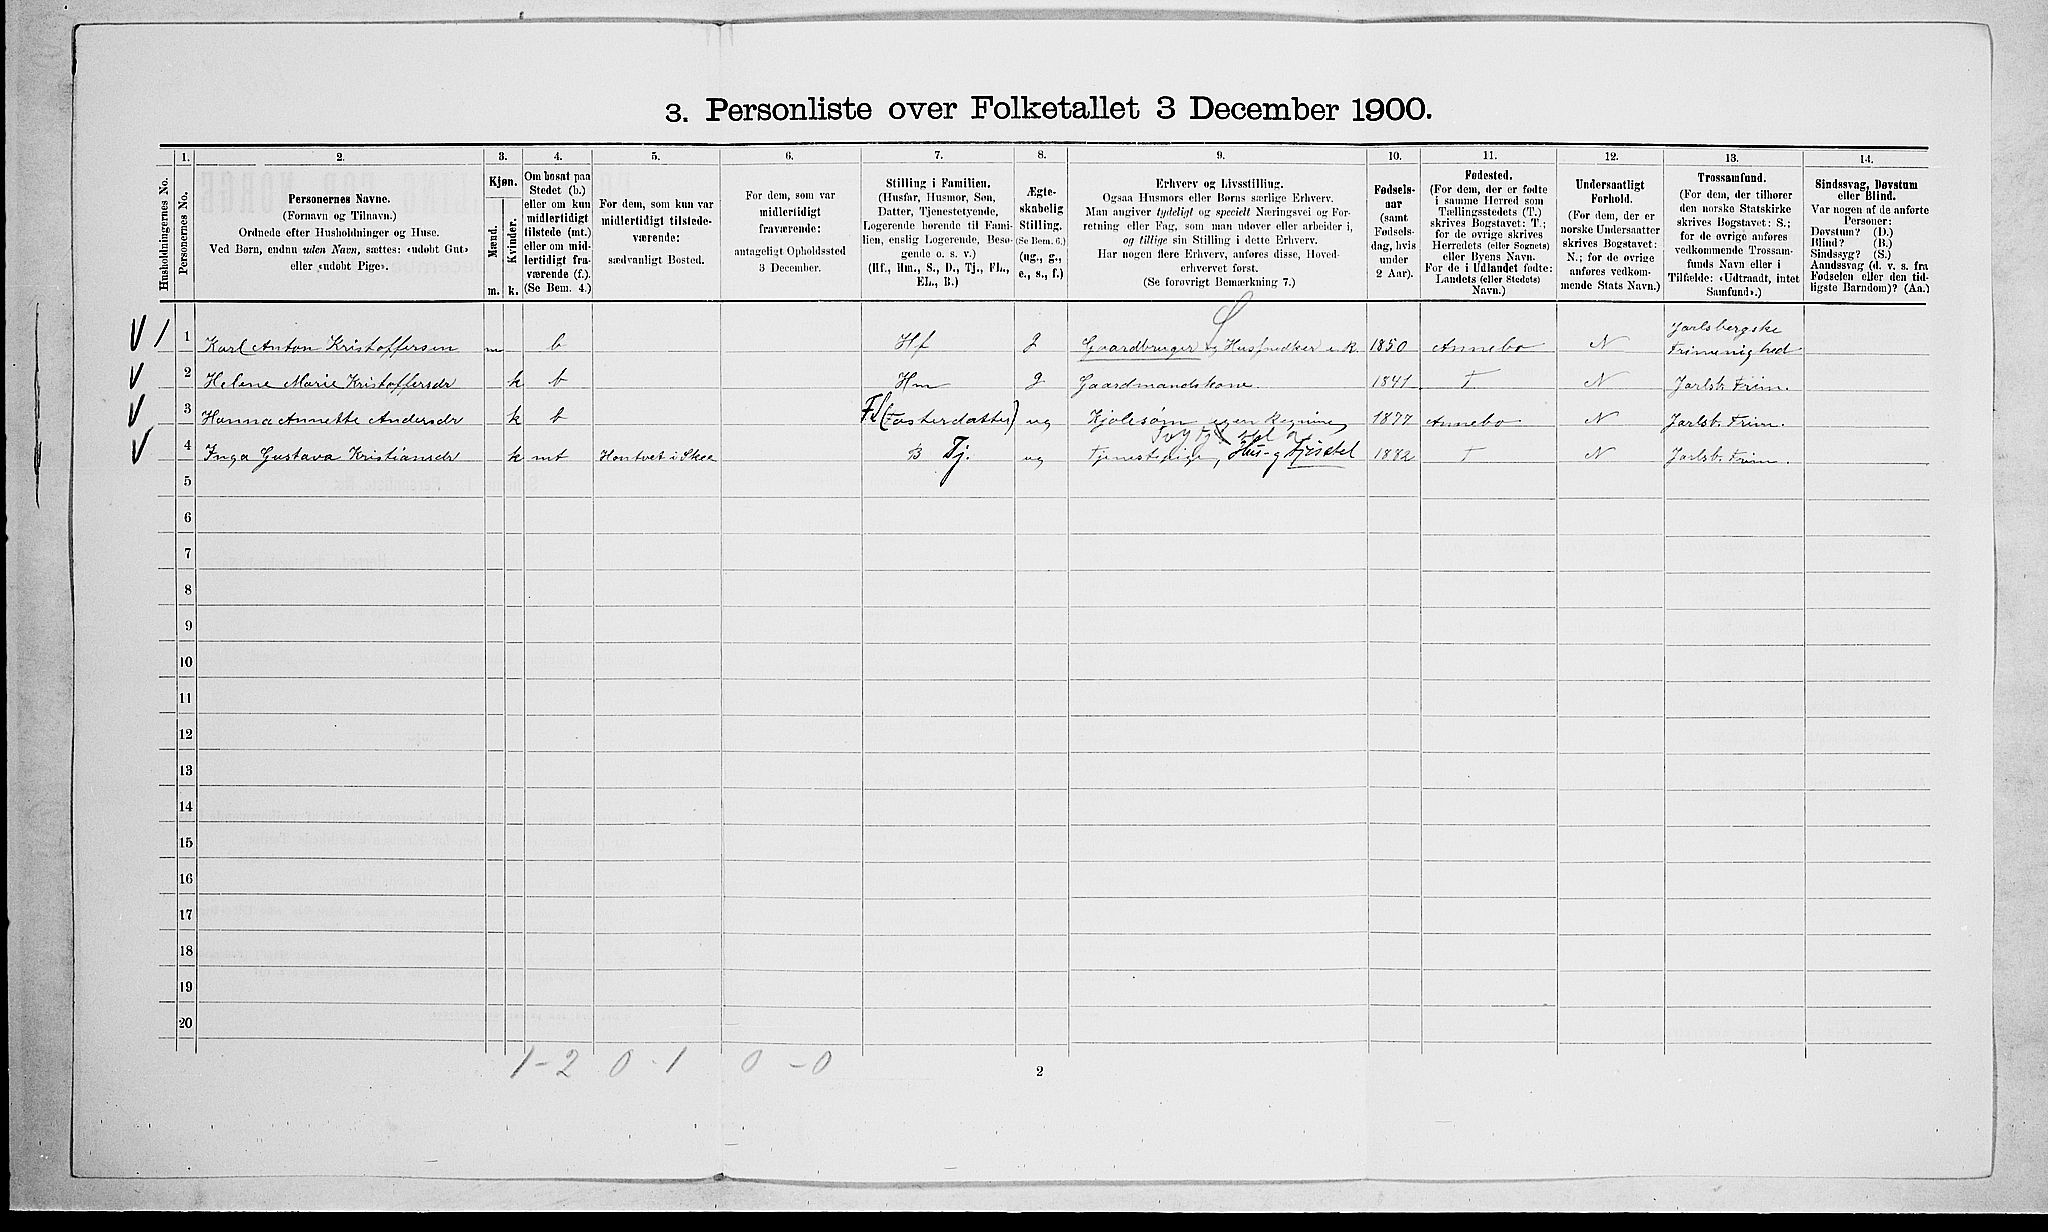 3. Personliste over Folketallet 3 December 1900.
1. 2. 3. 4. 5. 6. 7. 8. 9. 10. 11. 12. 13. 14.
Husholdningernes No.
Personernes No.
Personernes Navne.
(Fornavn og Tilnavn.)
Ordnede efter Husholdninger og Huse.
Ved Børn, endnu uden Navn, sættes: «udøbt Gut»
eller «udøbt Pige».
Kjøn.
Mænd.
Kvinder.
m. k.
Om bosat paa
Stedet (b.)
eller om kun
midlertidigt
tilstede (mt.)
eller om mid-
lertidigt fra-
værende (f.).
(Se Bem. 4.)
For dem, som kun var
midlertidigt tilstede-
værende:
sædvanligt Bosted.
For dem, som var
midlertidigt
fraværende:
antageligt Opholdssted
3 December.
Stilling i Familien.
(Husfar, Husmor, Søn,
Datter, Tjenestetyende,
Logerende hørende til Fami-
lien, enslig Logerende, Besø-
gende o. s. v.)
(Hf., Hm., S., D., Tj., FL.,
EL., B.)
Ægte-
skabelig
Stilling.
(Se Bem. 6.)
(ug., g.,
e., s., f.)
Erhverv og Livsstilling.
Ogsaa Husmors eller Børns særlige Erhverv.
Man angiver tydeligt og specielt Næringsvei og For-
retning eller Fag, som man udøver eller arbeider i,
og tillige sin Stilling i dette Erhverv.
Har nogen flere Erhverv, anføres disse, Hoved-
erhvervet først.
(Se forøvrigt Bemærkning 7.)
Fødsels-
aar
(samt
Fødsels-
dag, hvis
under
2 Aar).
Fødested.
(For dem, der er fødte
i samme Herred som
Tællingsstedets (T.)
skrives Bogstavet: T.;
for de øvrige skrives
Herredets (eller Sognets)
eller Byens Navn.
For de i Udlandet fødte:
Landets (eller Stedets)
Navn.)
Undersaatligt
Forhold.
(For dem, der er
norske Undersaatter
skrives Bogstavet:
N.; for de øvrige
anføres vedkom-
mende Stats Navn.)
Trossamfund.
(For dem, der tilhører
den norske Statskirke
skrives Bogstavet: S.;
for de øvrige anføres
vedkommende Trossam-
funds Navn eller i
Tilfælde: «Udtraadt, intet
Samfund».)
Sindssvag, Døvstum
eller Blind.
Var nogen af de anførte
Personer:
Døvstum? (D.)
Blind? (B.)
Sindssyg? (S.)
Aandssvag (d. v. s. fra
Fødselen eller den tid-
ligste Barndom)? (Aa.)
V 1 1 Karl Anton Kristoffersen m b Hf g Gaardbruger og Hussnedker e. R. 1850 Annebo N Jarlsbergske
Frimenighed
V 2 Helene Marie Kristoffersdr k b Hm g Gaardmandskone. 1841 T N Jarlsb. Frim.
V 3 Hanna Annette Andersdr k b Fl (Fosterdatter) ug Kjolesøm egen Regning 1877 Annebo N Jarlsb. Frim.
V 4 Inga Gustava Kristiansdr k mt Hontvet i Skee B Tj. ug Tjenestepige, Hus- og Fjøsstel 1882 T N Jarlsb. Frim.
5
6
7
8
9
10
11
12
13
14
15
16
17
18
19
20
1 - 2 0 - 1 0 - 0
2